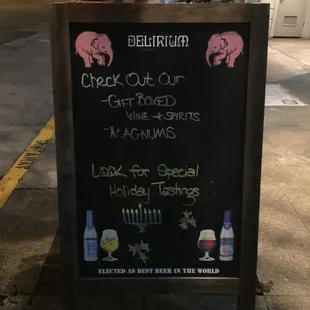 DELIRIUM
Check Out Our
- Gift Boxed
Wine + Spirits
- Magnums
Look for Special
Holiday Tastings
ELECTED AS BEST BEER IN THE WORLD